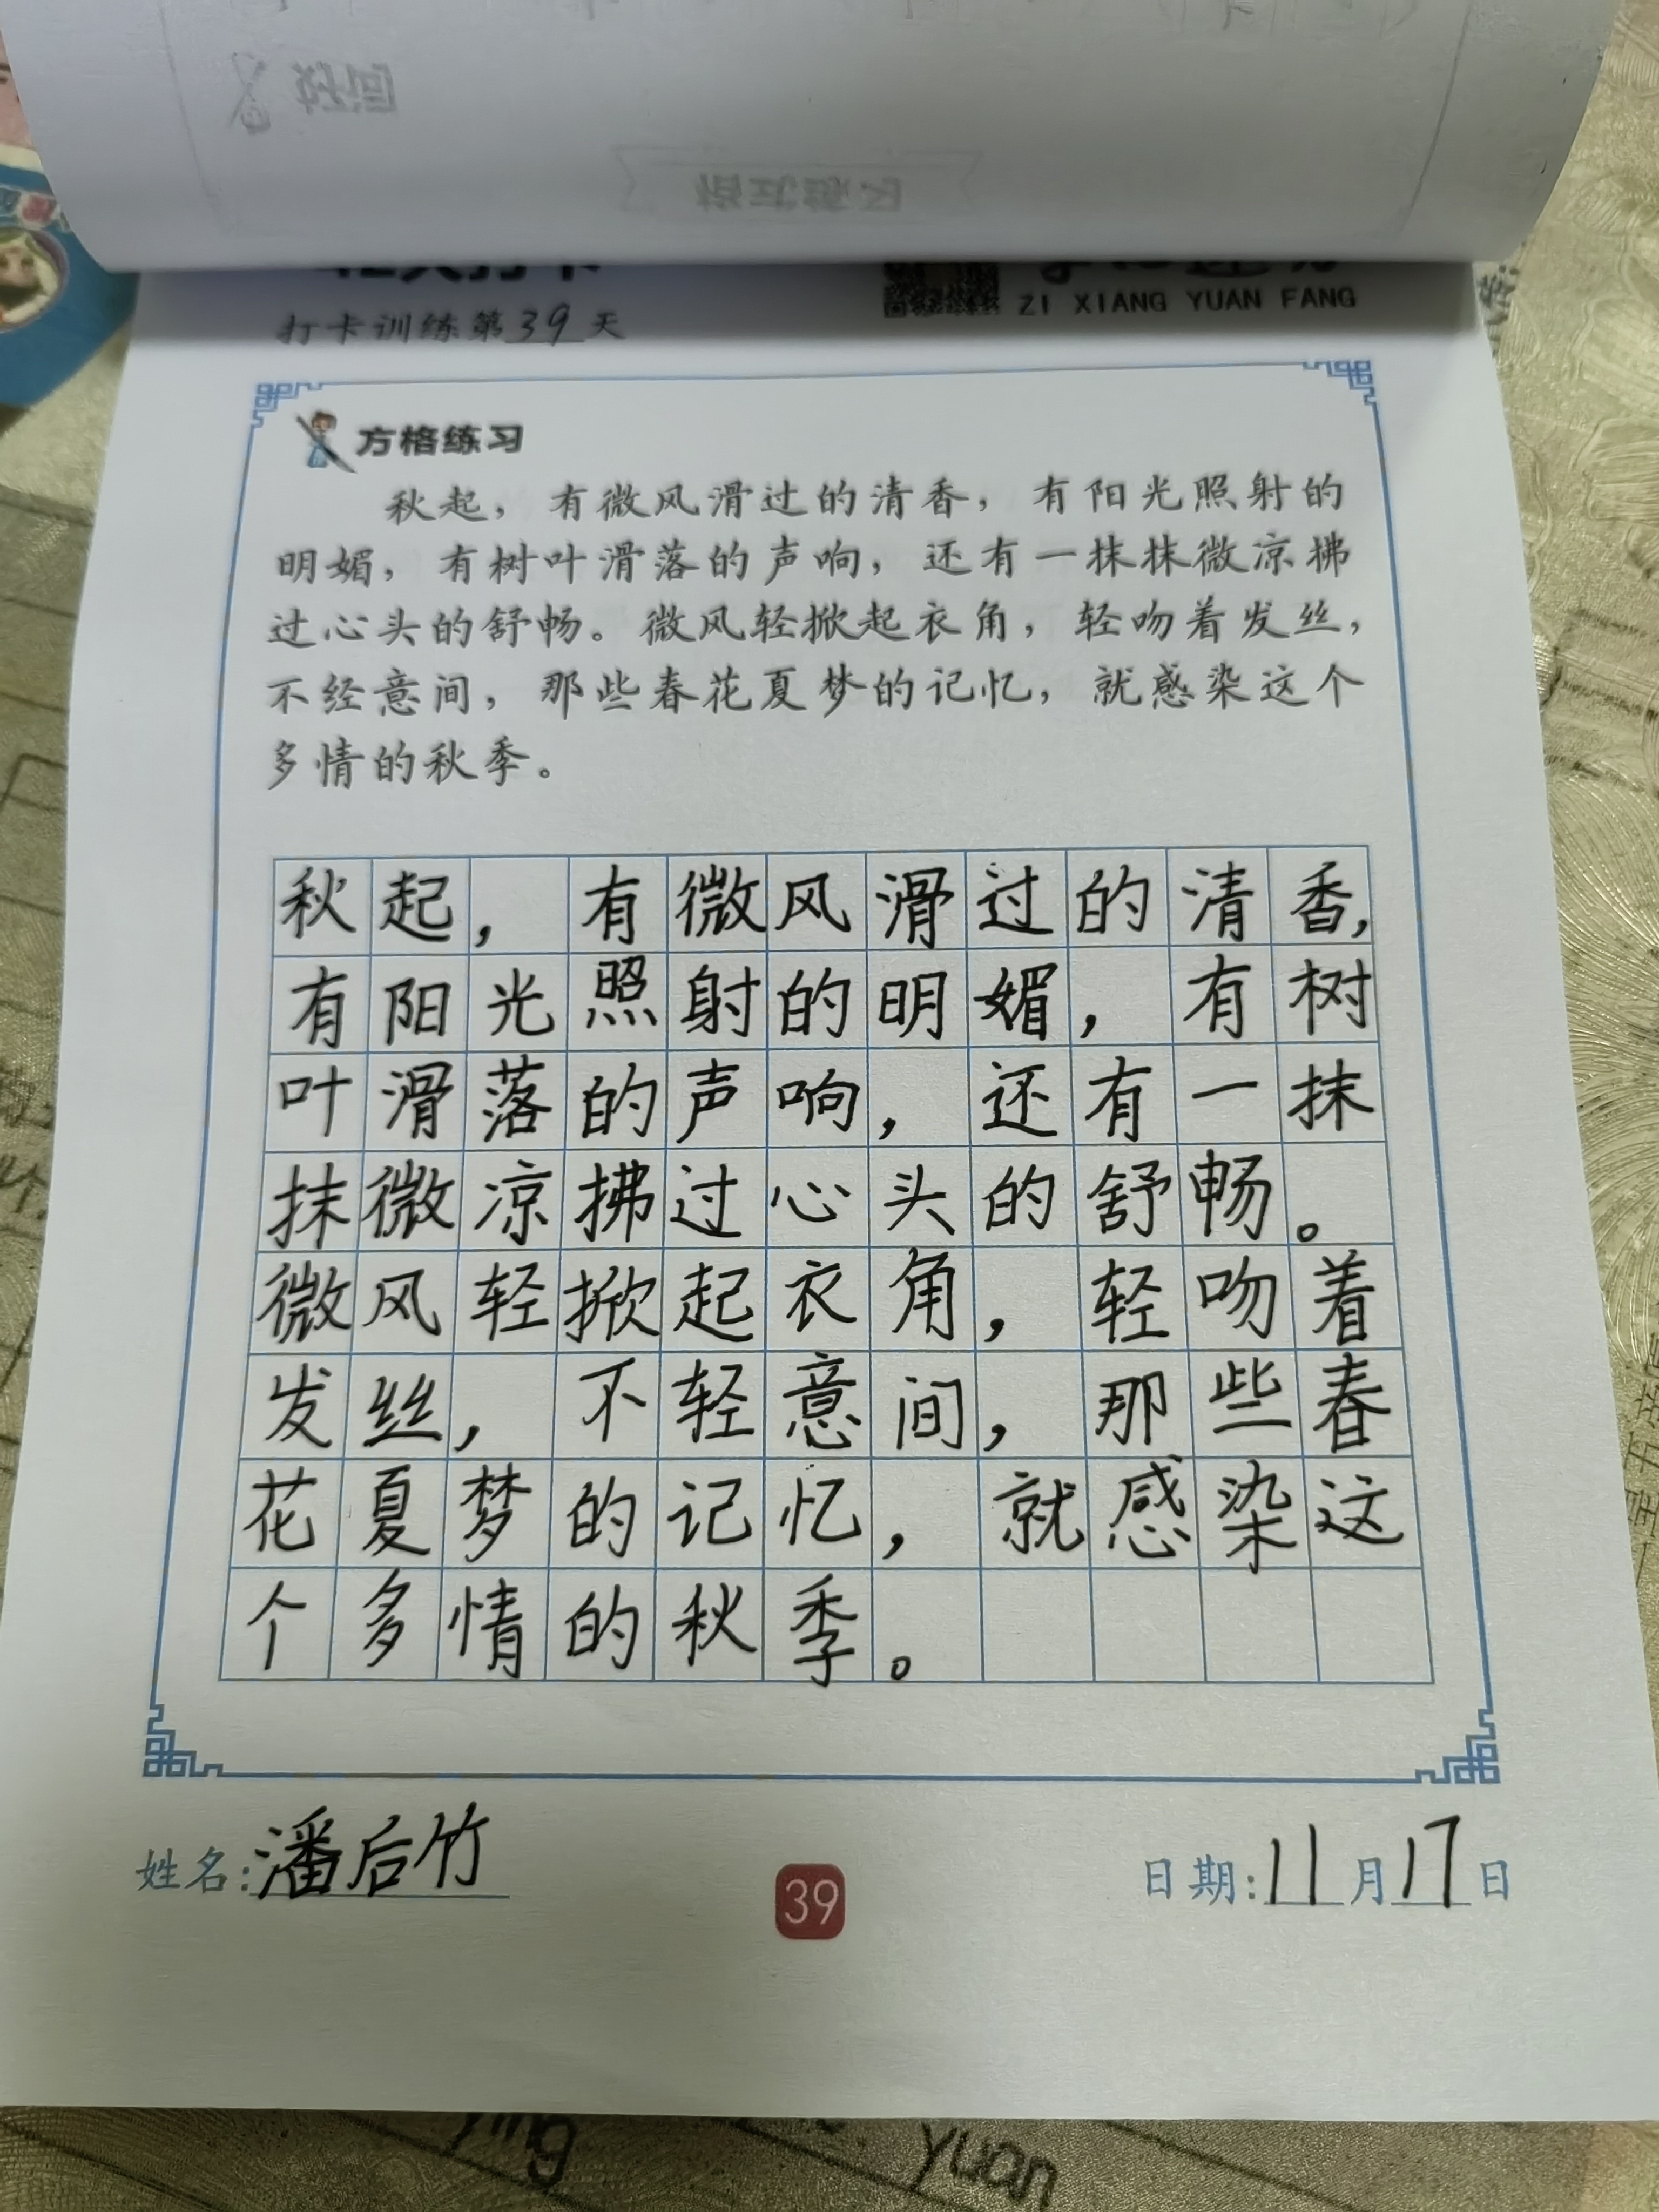 打卡训练第39天
ZI XIANG YUAN FANG
方格练习
秋起，有微风滑过的清香，有阳光照射的
明媚，有树叶滑落的声响，还有一抹抹微凉拂
过心头的舒畅。微风轻掀起衣角，轻吻着发丝，
不经意间，那些春花夏梦的记忆，就感染这个
多情的秋季。
秋起，有微风滑过的清香，
有阳光照射的明媚，有树
叶滑落的声响，还有一抹
抹微凉拂过心头的舒畅。
微风轻掀起衣角，轻吻着
发丝，不轻意间，那些春
花夏梦的记忆，就感染这
个多情的秋季。
姓名：潘后竹
39
日期：11月17日
ying
yuan